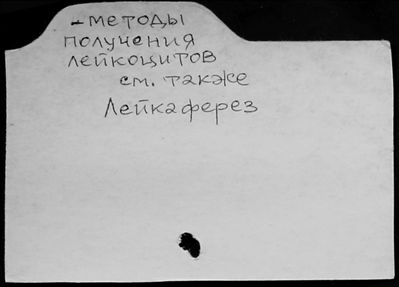 - методы
получения
лейкоцитов
см. также
Лейкаферез